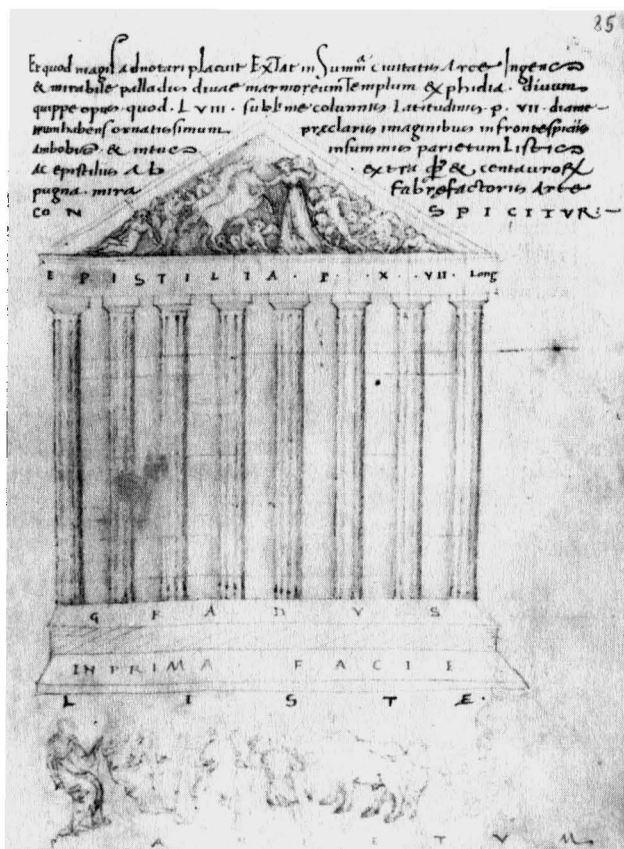 85
Et quod magis adnotari placuit Extat in Summa civitatis Arce Ingens
& mirabile palladis divae marmoreum Templum & phidiae divum
quippe opus quod. L VIII. sublime columnis Latitudinis. p. VII. diame-
trum habens ornatissimum praeclaris imaginibus in frontespiciis
Ambobus & intus in summis parietum Listis
Ac epistiliis Ab extra & centauror
pugna. mira Fabrefactoris Arte
CON SPICITVR:-
EPISTILIA. P. X. VII. Long
GRADVS
IN PRIMA FACIE
LISTÆ.
P A R I E T V M